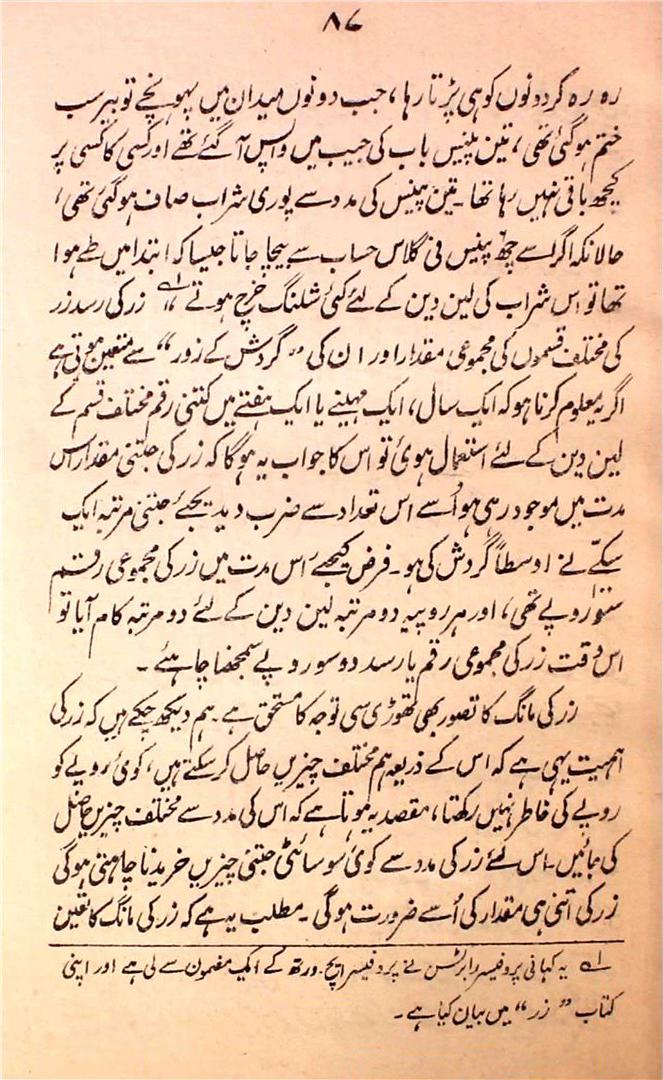 ۸۷
رہ رہ کر دونوں کو ہی پڑتا رہا، جب دونوں میدان میں پہونچے تو بیر سب
ختم ہو گئی تھی، تین پینس باب کی جیب میں واپس آ گئے تھے اور کسی کا کسی پر
کچھ باقی نہیں رہا تھا۔ تین پینس کی مدد سے پوری شراب صاف ہو گئی تھی،
حالانکہ اگر اسے چھ پینس فی گلاس حساب سے بیچا جاتا جیسا کہ ابتدا میں طے ہوا
تھا تو اس شراب کی لین دین کے لئے کئی شلنگ خرچ ہوتے“ لہ زر کی رسد زر
کی مختلف قسموں کی مجموعی مقدار اور ان کی ”گردش کے زور“ سے متعین ہوتی ہے
اگر یہ معلوم کرنا ہو کہ ایک سال، ایک مہینے یا ایک ہفتے میں کتنی رقم مختلف قسم کے
لین دین کے لئے استعمال ہوئی تو اس کا جواب یہ ہوگا کہ زر کی جتنی مقدار اس
مدت میں موجود رہی ہو اُسے اس تعداد سے ضرب دیدیجئے جتنی مرتبہ ایک
سکّے نے اوسطاً گردش کی ہو۔ فرض کیجئے اس مدت میں زر کی مجموعی رقم
سَو روپے تھی، اور ہر روپیہ دو مرتبہ لین دین کے لئے دو مرتبہ کام آیا تو
اس وقت زر کی مجموعی رقم یا رسد دو سو روپے سمجھنا چاہئے۔
زر کی مانگ کا تصور بھی تھوڑی سی توجہ کا مستحق ہے۔ ہم دیکھ چکے ہیں کہ زر کی
اہمیت یہی ہے کہ اس کے ذریعہ ہم مختلف چیزیں حاصل کر سکتے ہیں، کوئی روپے کو
روپے کی خاطر نہیں رکھتا، مقصد یہ ہوتا ہے کہ اس کی مدد سے مختلف چیزیں حاصل
کی جائیں۔ اس لئے زر کی مدد سے کوئی سوسائٹی جتنی چیزیں خریدنا چاہتی ہوگی
زر کی اتنی ہی مقدار کی اُسے ضرورت ہوگی۔ مطلب یہ ہے کہ زر کی مانگ کا تعین
لہ یہ کہانی پروفیسر رابرٹسن نے پروفیسر ایچ۔ ورتھ کے ایک مضمون سے لی ہے اور اپنی
کتاب ”زر“ میں بیان کیا ہے۔